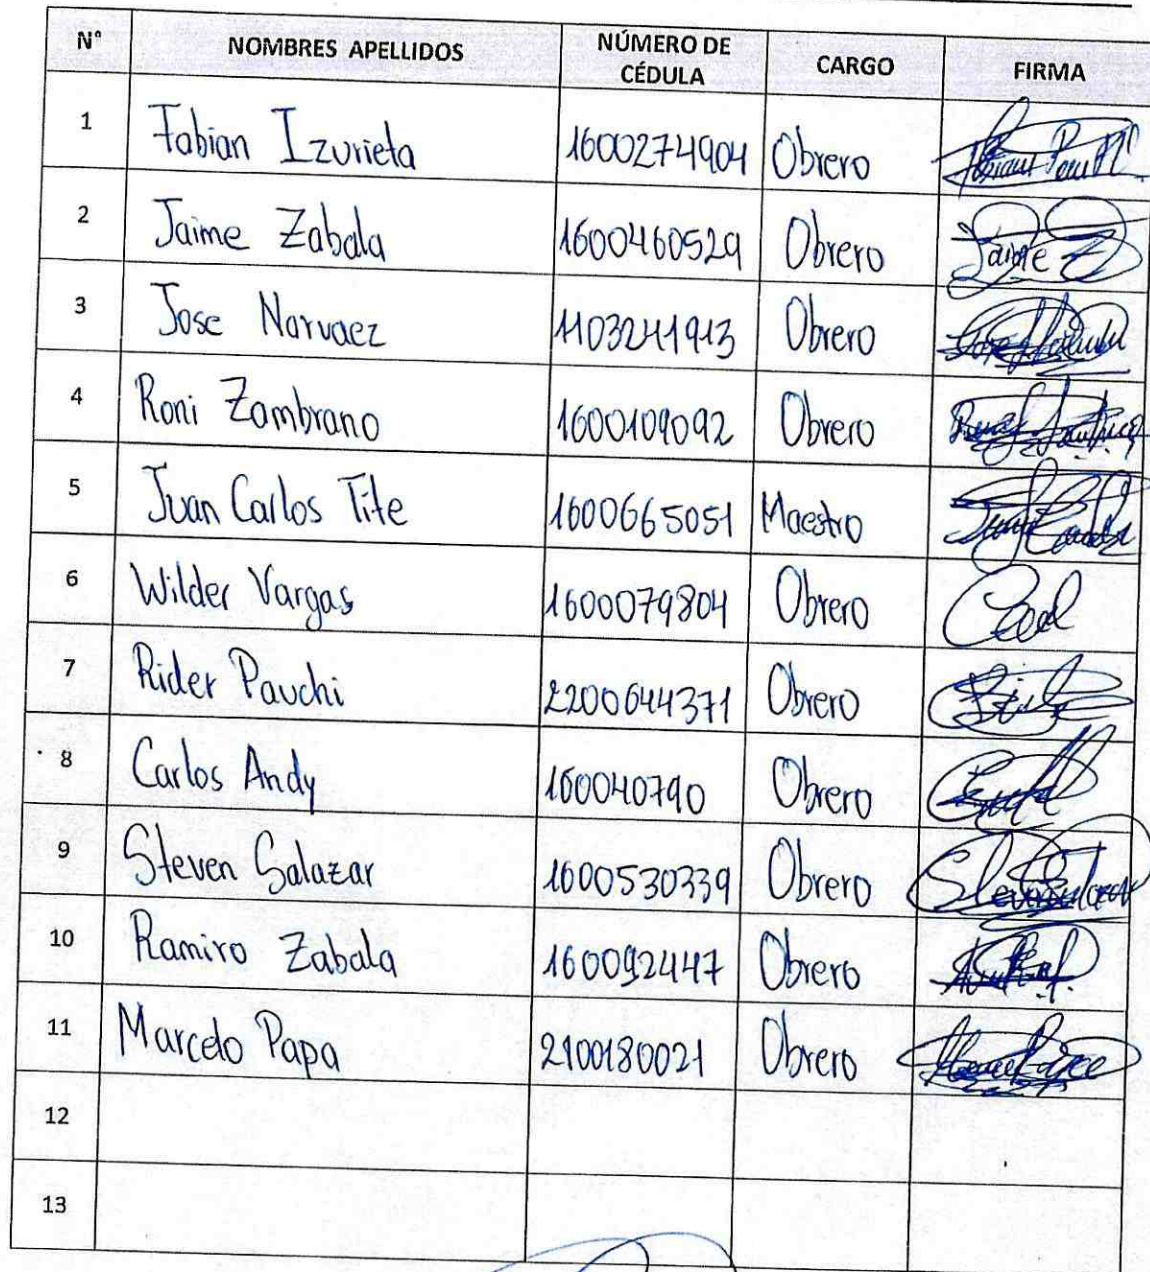 N° NOMBRES APELLIDOS NÚMERO DE CÉDULA CARGO FIRMA
1 Fabian Izurieta 1600274904 Obrero
2 Jaime Zabala 1600460529 Obrero Jaime Z
3 Jose Narvaez 1103241913 Obrero
4 Roni Zambrano 1600109092 Obrero
5 Juan Carlos Tite 1600665051 Maestro
6 Wilder Vargas 1600079804 Obrero
7 Rider Pauchi 2200644371 Obrero
8 Carlos Andy 160040790 Obrero
9 Steven Salazar 1600530339 Obrero
10 Ramiro Zabala 160092447 Obrero
11 Marcelo Papa 2100180021 Obrero
12
13